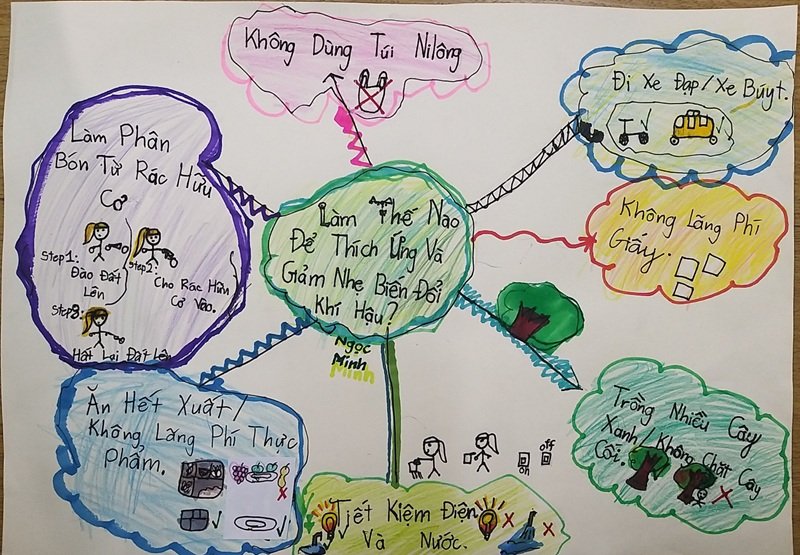 Không Dùng Túi Nilông
Đi Xe Đạp/Xe Búyt.
Làm Phân
Bón Từ Rác Hữu
Cơ
Step1:
Đào Đất
Lên
Step2:
Cho Rác Hữu
Cơ Vào.
Step3:
Hất Lại Đất Lên
Làm Thế Nào
Để Thích Ứng Và
Giảm Nhẹ Biến Đổi
Khí Hậu?
Ngọc
Minh
Minh
Không Lãng Phí
Giấy.
Trồng Nhiều Cây
Xanh/Không Chặt Cây
Cối.
Ăn Hết Xuất/
Không Lãng Phí Thực
Phẩm.
on
off
Tiết Kiệm Điện
Và Nước.